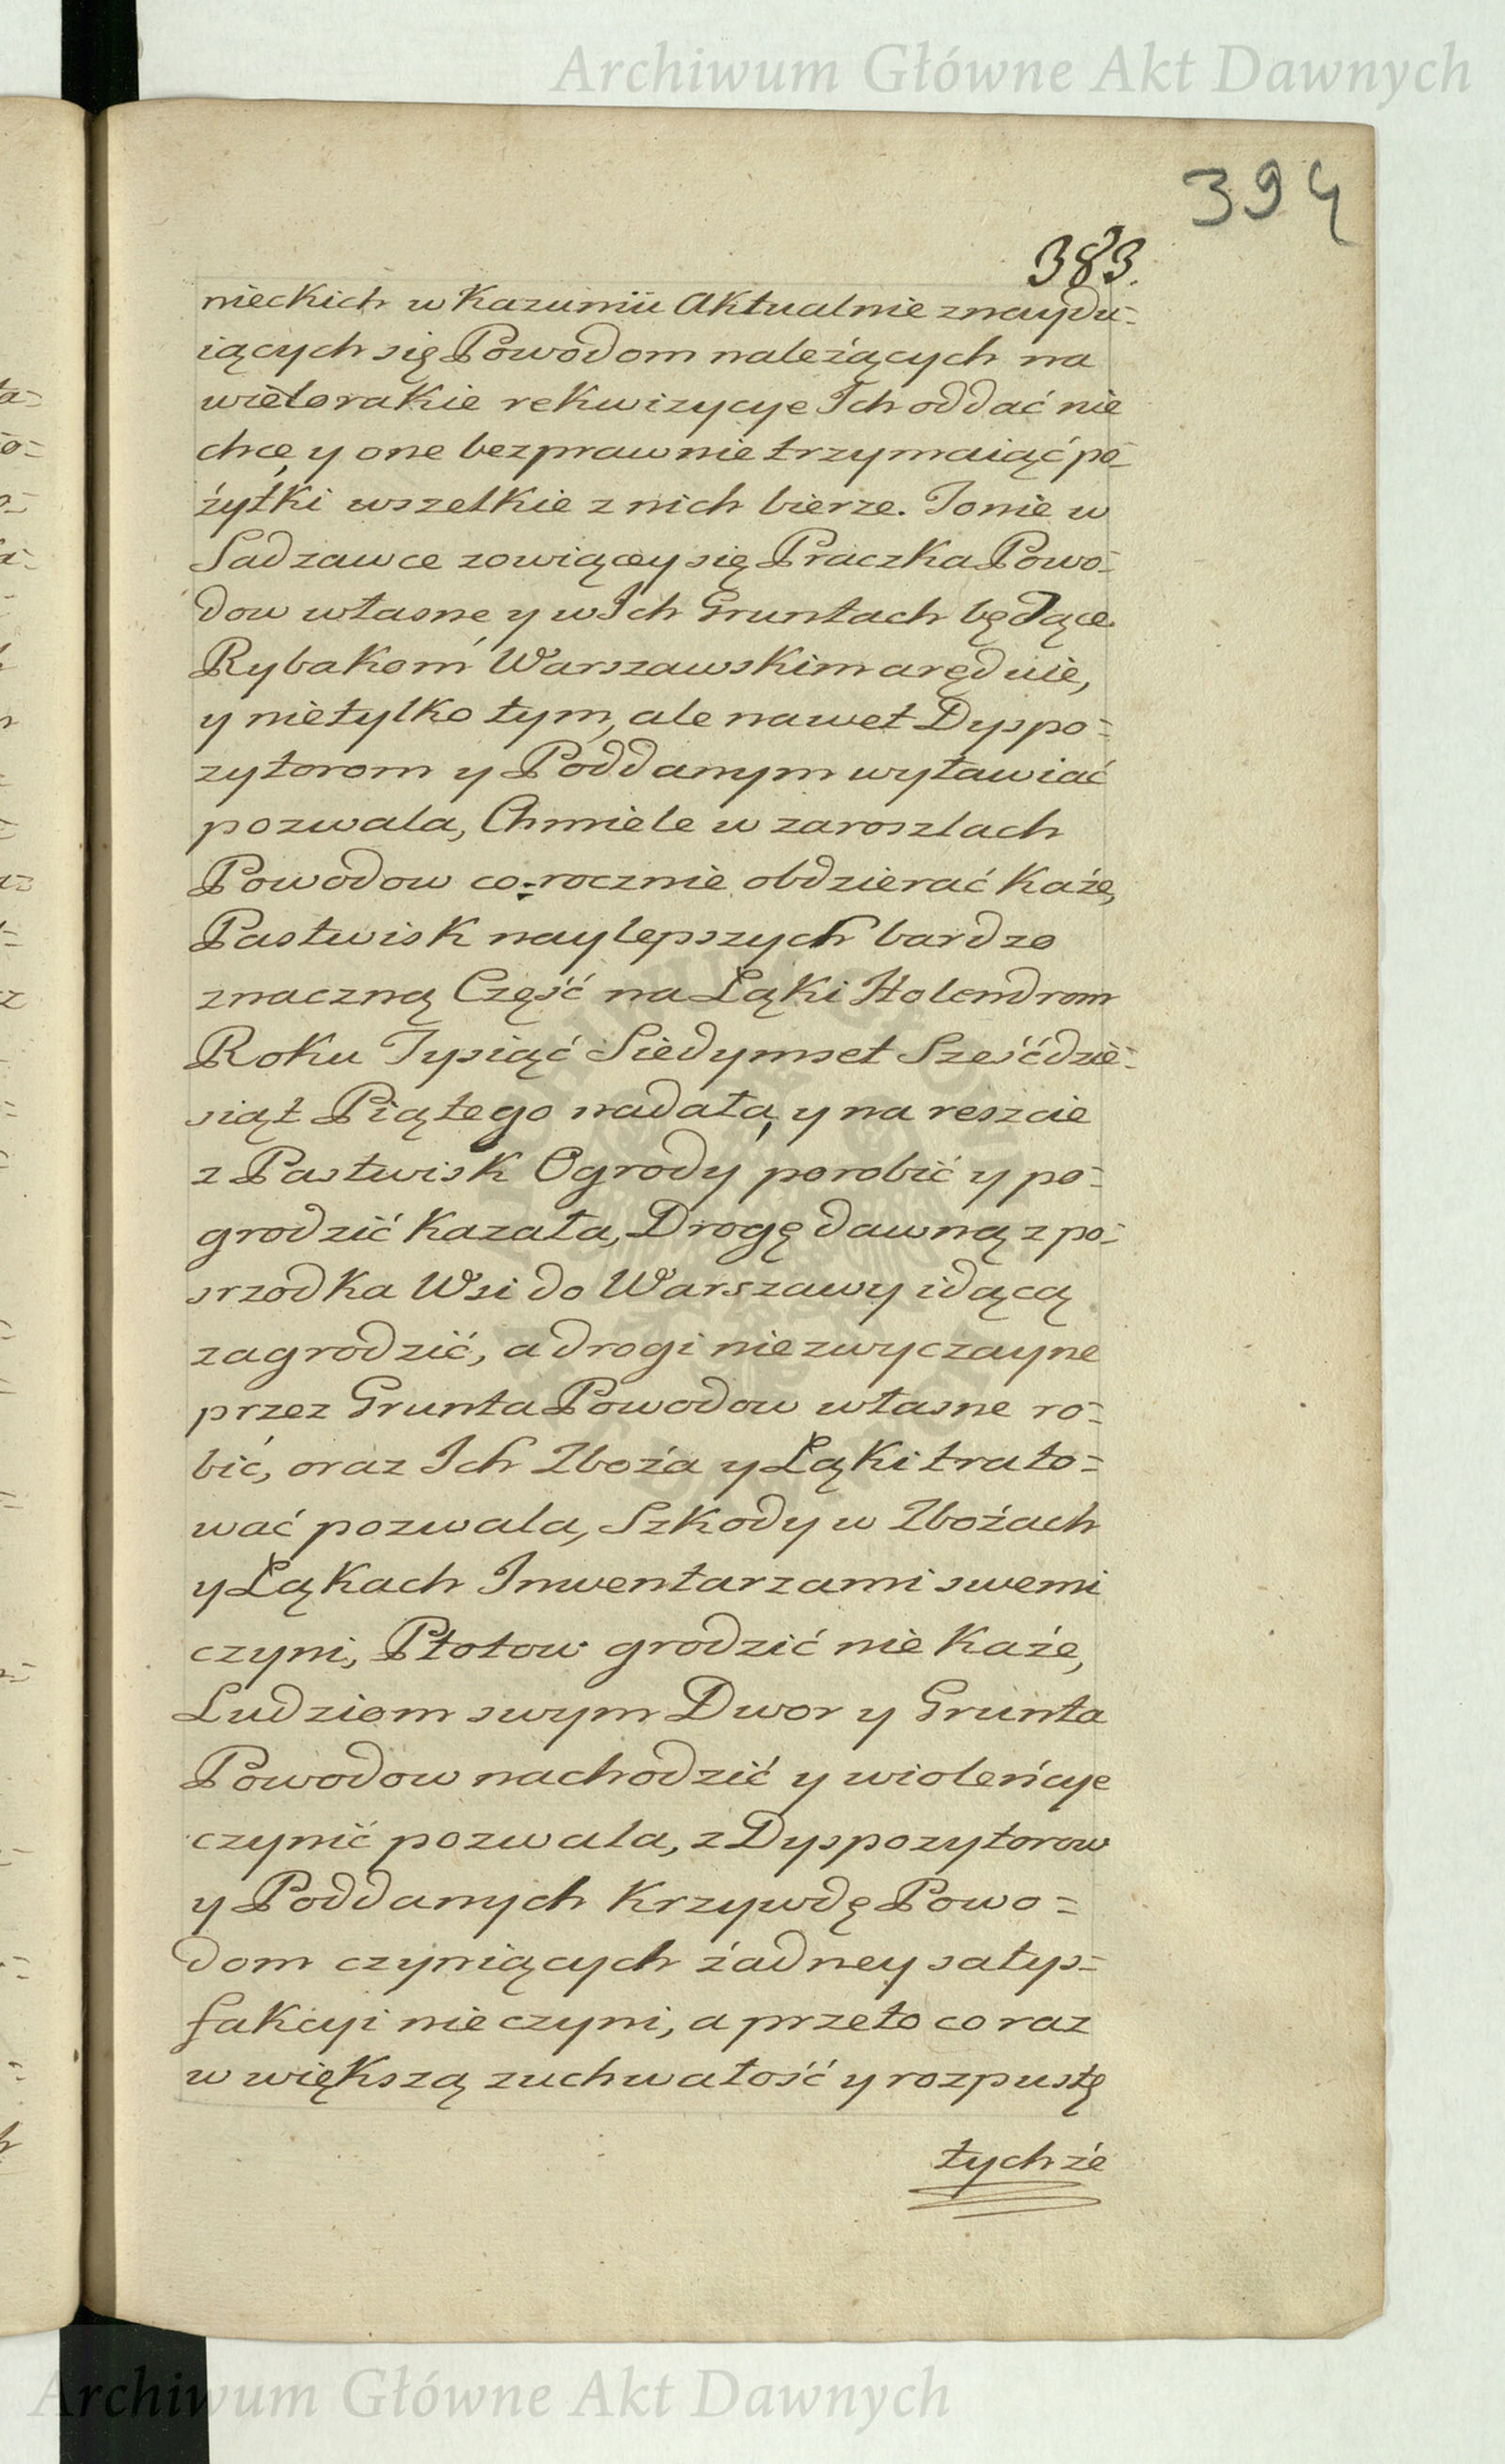 Archiwum Główne Akt Dawnych
394
383.
nieckich w Kazuniu Aktualnie znaydu=
iących się Powodom należących na
wielorakie rekwizycye Ich oddać nie
chce, y one bezprawnie trzymaiąć po=
żytki wszelkie z nich bierze. Tonie w
Sadzawce zowiącey się Praczka Powo=
dow własne y w Ich Gruntach będące
Rybakom Warszawskim aręduie,
y nietylko tym, ale nawet Dyspo=
zytorom y Poddanym wyławiać
pozwala, Chmiele w zaroszlach
Powodow co=rocznie obdzierać każe,
Pastwisk naylepszych bardzo
znaczną Część na Łąki Holendrom
Roku Tysiąć Siedymset Sześćdzie=
siąt Piątego nadała, y na reszcie
z Pastwisk Ogrody porobić y po=
grodzić kazała, Drogę dawną z po=
srzodka Wsi do Warszawy idącą
zagrodzić, a drogi niezwyczayne
przez Grunta Powodow własne ro=
bić, oraz Ich Zboża y Łąki trato=
wać pozwala, Szkody w Zbożach
y Łąkach Inwentarzami swemi
czyni, Płotow grodzić nie każe,
Ludziom swym Dwor y Grunta
Powodow nachodzić y wioleńcye
czynić pozwala, z Dyspozytorow
y Poddanych Krzywdę Powo=
dom czyniących żadney satys=
fakcyi nie czyni, a przeto co raz
w większą zuchwałość y rozpustę
tychże
Archiwum Główne Akt Dawnych